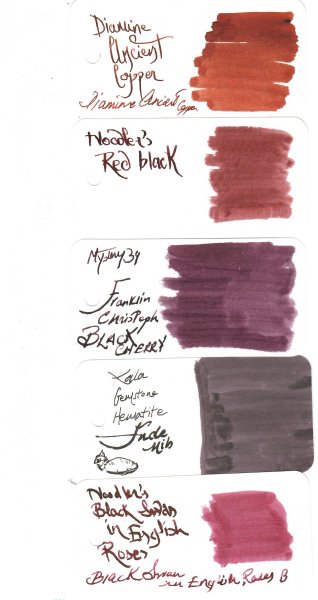 Diamine
Ancient
Copper
Diamine Ancient Copper
Noodler's
Red black
Mystery 39
Franklin
Christoph
BLACK
CHERRY
Gemstone
Hematite
Nib
Noodler's
Black Swan
in English
Roses
Black Swan in English Roses B